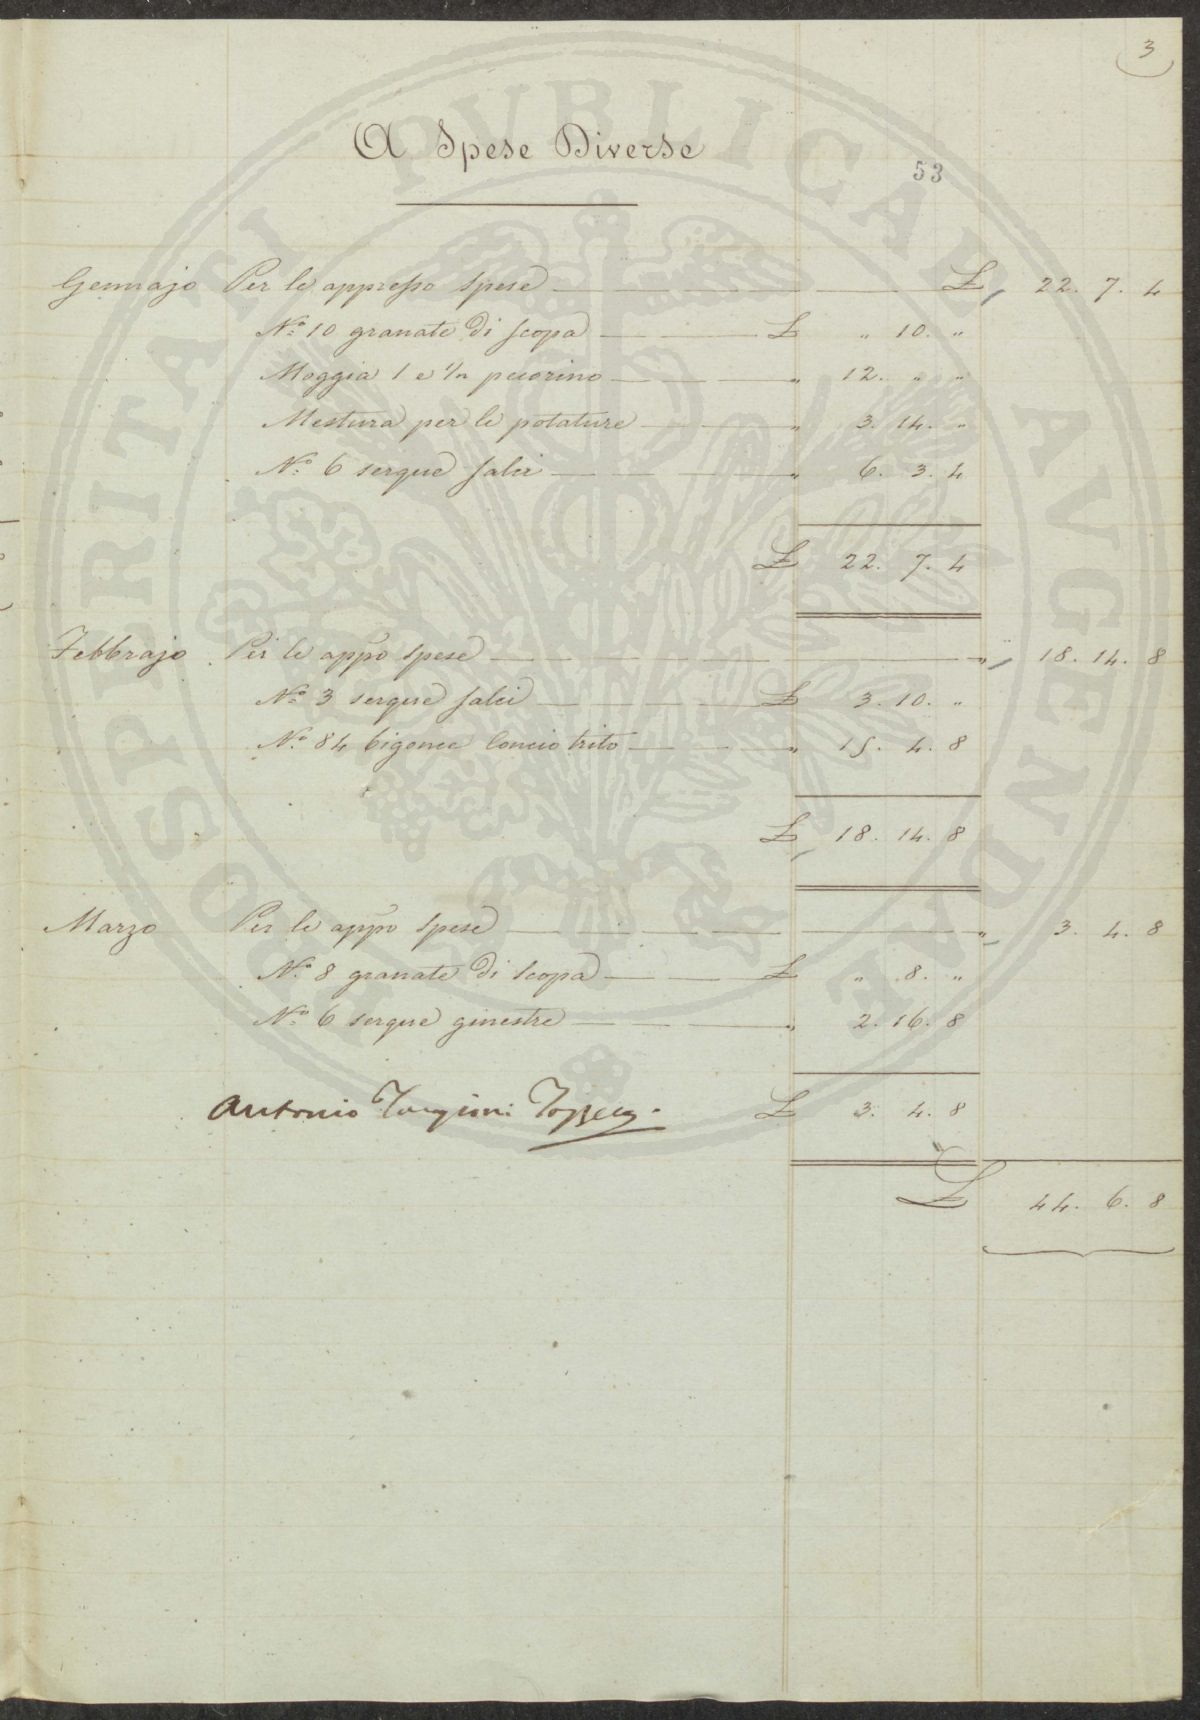 3
A Spese Diverse
53
Gennajo Per le appresso spese £ 22. 7. 4
N.º 10 granate di scopa £ " 10. "
Moggia 1 e ½ pecorino " 12. " "
Mestura per le potature " 3. 14. "
N.º 6 serque salci " 6. 3. 4
£ 22. 7. 4
Febbrajo Per le appo spese " 18. 14. 8
N.º 3 serque salci £ 3. 10. "
N.º 84 bigonce concio trito " 15. 4. 8
£ 18. 14. 8
Marzo Per le appo spese " 3. 4. 8
N.º 8 granate di scopa £ " 8. "
N.º 6 serque ginestre " 2. 16. 8
Antonio Targioni Tozzetti £ 3. 4. 8
£ 44. 6. 8
PROSPERITATI PVBLICAE AVGENDAE